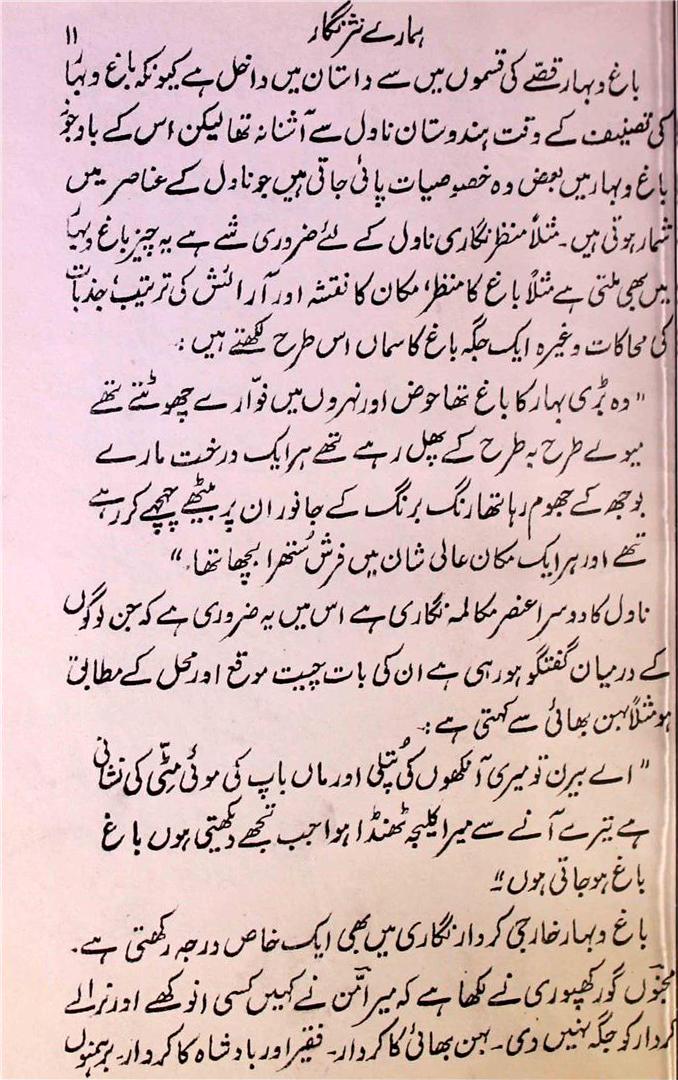 ہمارے نثر نگار ۱۱
باغ و بہار قصّے کی قسموں میں سے داستان میں داخل ہے کیونکہ باغ و بہار
کی تصنیف کے وقت ہندوستان ناول سے آشنا نہ تھا لیکن اس کے باوجود
باغ و بہار میں بعض وہ خصوصیات پائی جاتی ہیں جو ناول کے عناصر میں
شمار ہوتی ہیں۔ مثلاً منظر نگاری ناول کے لئے ضروری شے ہے یہ چیز باغ و بہار
میں بھی ملتی ہے مثلاً باغ کا منظر، مکان کا نقشہ اور آرائش کی ترتیب، جذبات
کی محاکات وغیرہ ایک جگہ باغ کا سماں اس طرح لکھتے ہیں :۔
"وہ بڑی بہار کا باغ تھا حوض اور نہروں میں فوّارے چھوٹتے تھے
میوے طرح بہ طرح کے پھل رہے تھے ہر ایک درخت مارے
بوجھ کے جھوم رہا تھا رنگ برنگ کے جانور ان پر بیٹھے چہچہے کر رہے
تھے اور ہر ایک مکان عالی شان میں فرش سُتھرا بچھا تھا۔"
ناول کا دوسرا عنصر مکالمہ نگاری ہے اس میں یہ ضروری ہے کہ جن لوگوں
کے درمیان گفتگو ہو رہی ہے ان کی بات چیت موقع اور محل کے مطابق
ہو مثلاً بہن بھائی سے کہتی ہے :۔
"اے بیرن تو میری آنکھوں کی پُتلی اور ماں باپ کی موئی مٹّی کی نشانی
ہے تیرے آنے سے میرا کلیجہ ٹھنڈا ہوا جب تجھے دیکھتی ہوں باغ
باغ ہو جاتی ہوں"
باغ و بہار خارجی کردار نگاری میں بھی ایک خاص درجہ رکھتی ہے۔
مجنوں گورکھپوری نے لکھا ہے کہ میر امّن نے کہیں کسی انوکھے اور نرالے
کردار کو جگہ نہیں دی۔ بہن بھائی کا کردار۔ فقیر اور بادشاہ کا کردار۔ برہمنوں